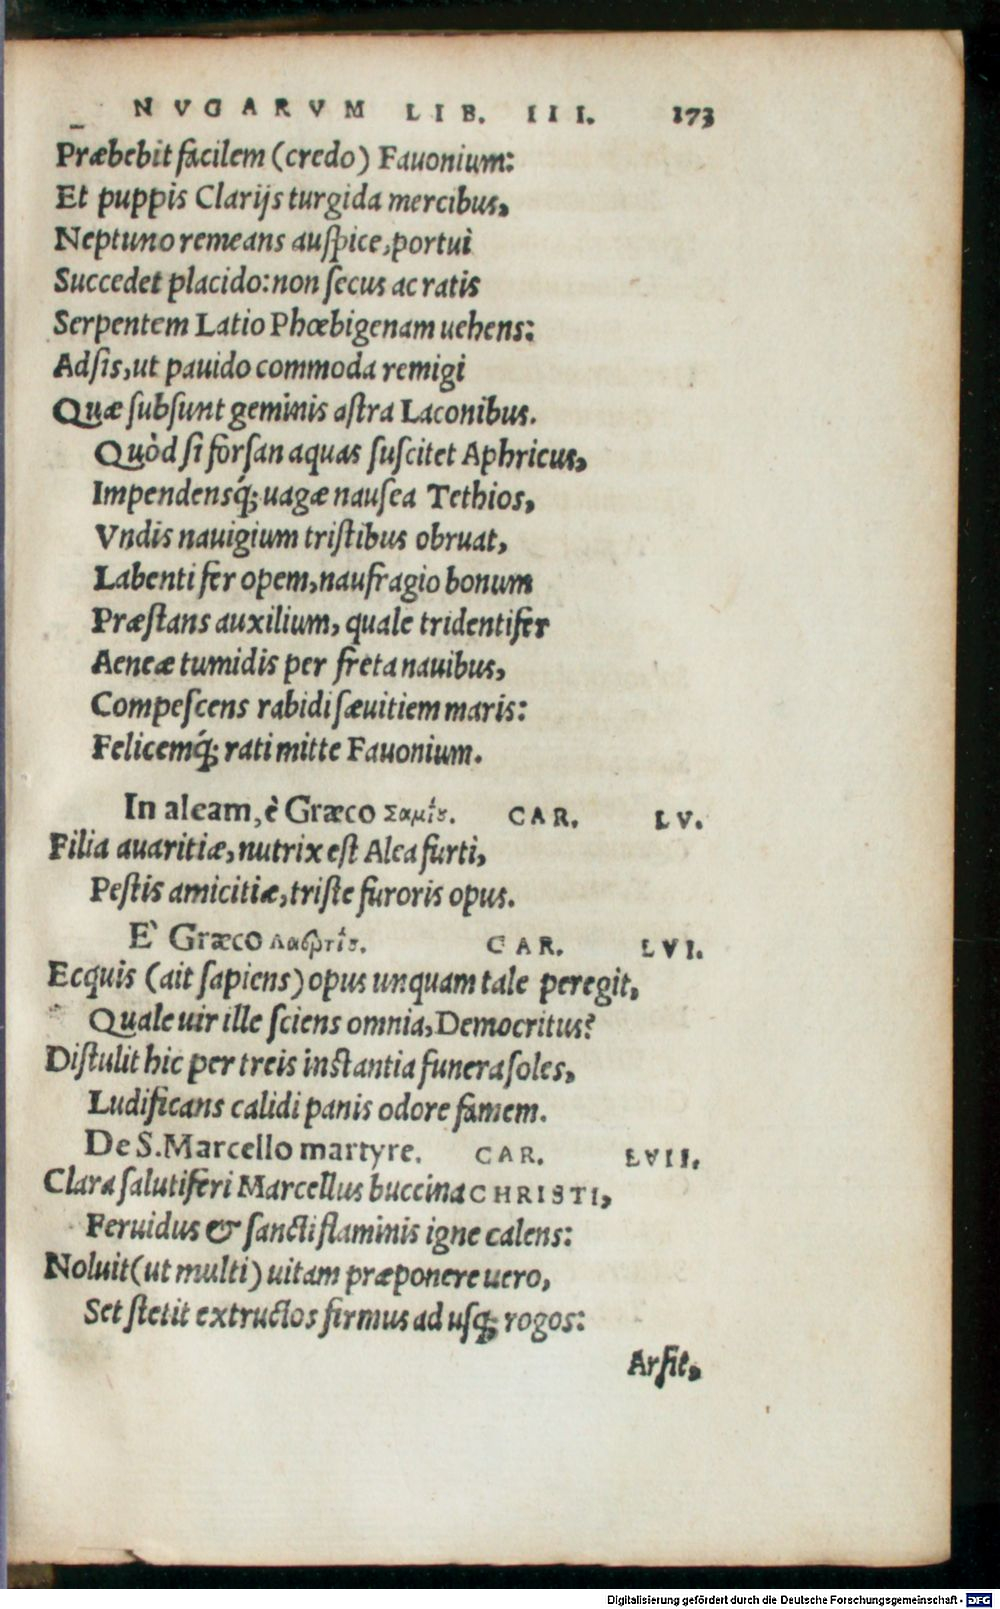 NVGARVM LIB. III. 173
Præbebit facilem (credo) Fauonium:
Et puppis Clarijs turgida mercibus,
Neptuno remeans auſpice, portui
Succedet placido: non ſecus ac ratis
Serpentem Latio Phœbigenam uehens:
Adſis, ut pauido commoda remigi
Quæ ſubſunt geminis aſtra Laconibus.
Quòd ſi forſan aquas ſuſcitet Aphricus,
Impendensq́; uagæ nauſea Tethios,
Vndis nauigium triſtibus obruat,
Labenti fer opem, naufragio bonum
Præſtans auxilium, quale tridentifer
Aeneæ tumidis per freta nauibus,
Compeſcens rabidi ſæuitiem maris:
Felicemq́; rati mitte Fauonium.
In aleam, è Græco CAR. LV.
Filia auaritiæ, nutrix eſt Alea furti,
Peſtis amicitiæ, triſte furoris opus.
E Græco CAR. LVI.
Ecquis (ait ſapiens) opus unquam tale peregit,
Quale uir ille ſciens omnia, Democritus?
Diſtulit hic per treis inſtantia funera ſoles,
Ludificans calidi panis odore famem.
De S. Marcello martyre. CAR. LVII.
Clara ſalutiferi Marcellus buccina CHRISTI,
Feruidus & ſancti flaminis igne calens:
Noluit (ut multi) uitam præponere uero,
Set ſtetit extructos firmus ad uſq; rogos:
Arſit,
Digitalisierung gefördert durch die Deutsche Forschungsgemeinschaft - DFG